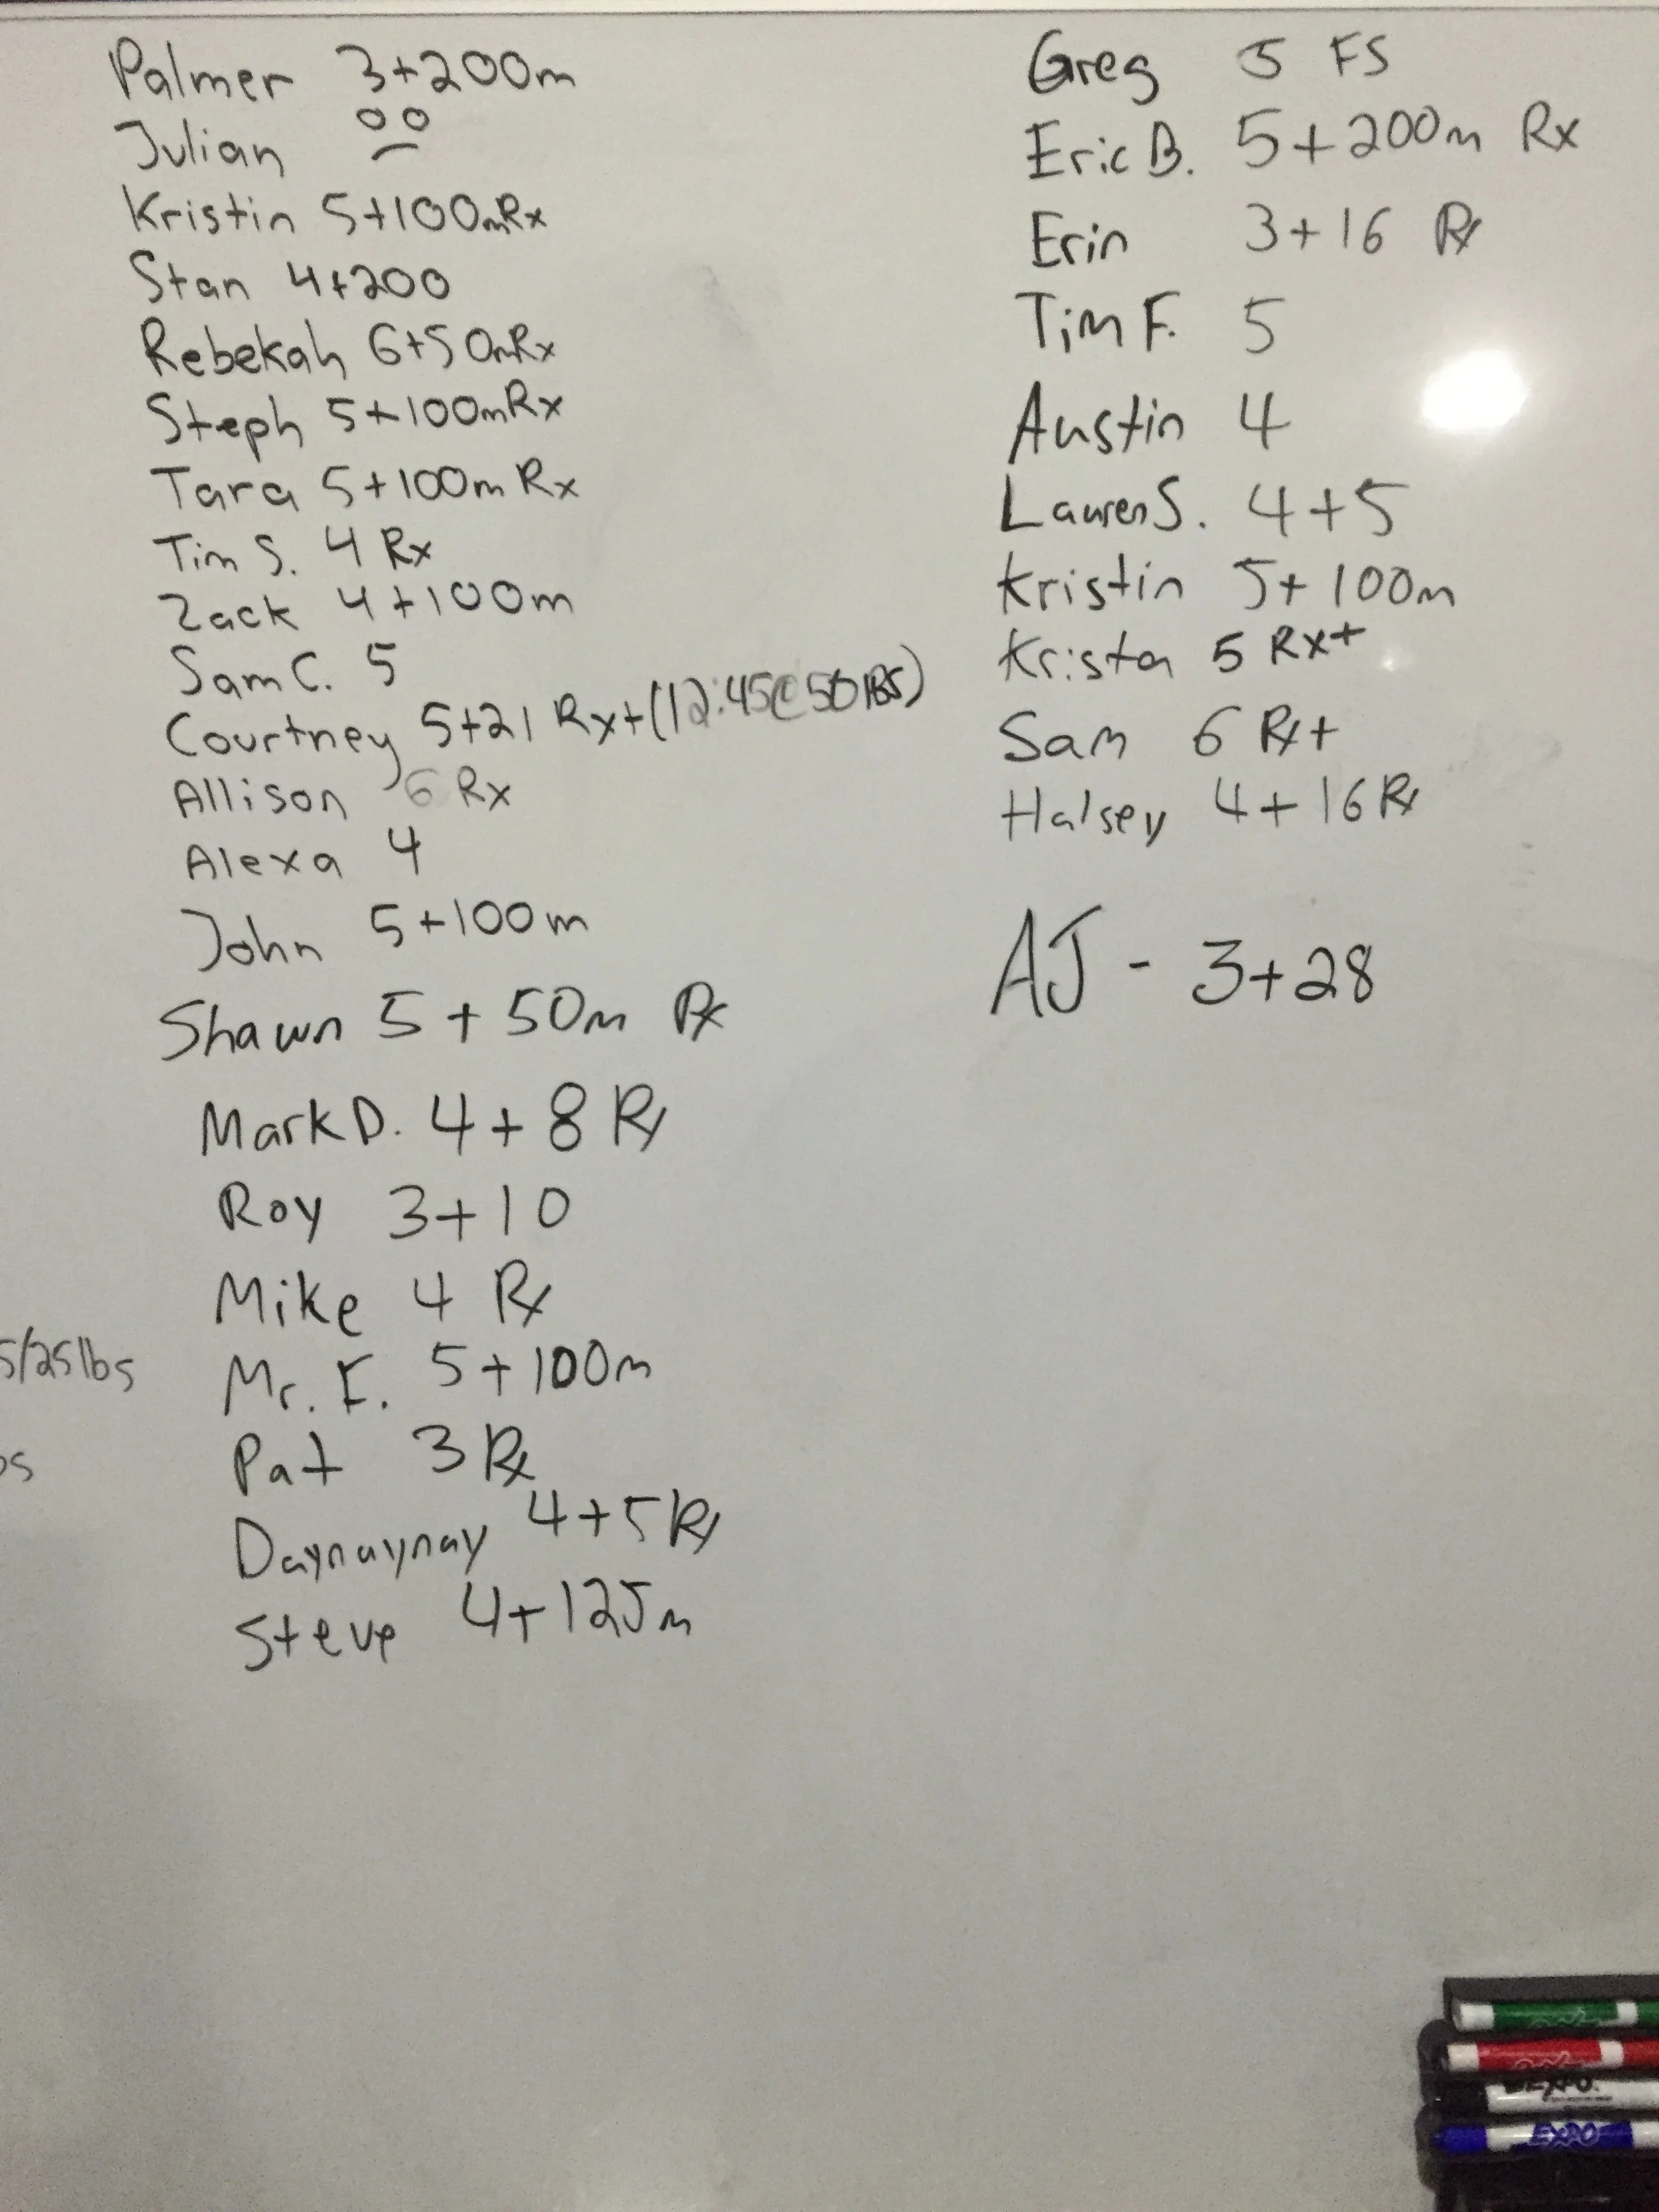 Palmer 3+200m
Julian
Kristin 5+100mRx
Stan 4+200
Rebekah 6+50mRx
Steph 5+100mRx
Tara 5+100m Rx
Tim S. 4 Rx
Zack 4+100m
Sam C. 5
Courtney 5+21 Rx+(12:45@50lbs)
Allison 6 Rx
Alexa 4
John 5+100m
Shawn 5+50m Rx
Mark D. 4+8 Rx
Roy 3+10
Mike 4 Rx
5/25lbs
Mr. F. 5+100m
Pat 3 Rx
bs
Daynaynay 4+5 Rx
Steve 4+125m
Greg 5 FS
Eric B. 5+200m Rx
Erin 3+16 Rx
Tim F. 5
Austin 4
Lauren S. 4+5
Kristin 5+100m
Krista 5 Rx+
Sam 6 Rx+
Halsey 4+16 Rx
AJ - 3+28
EXPO
EXPO